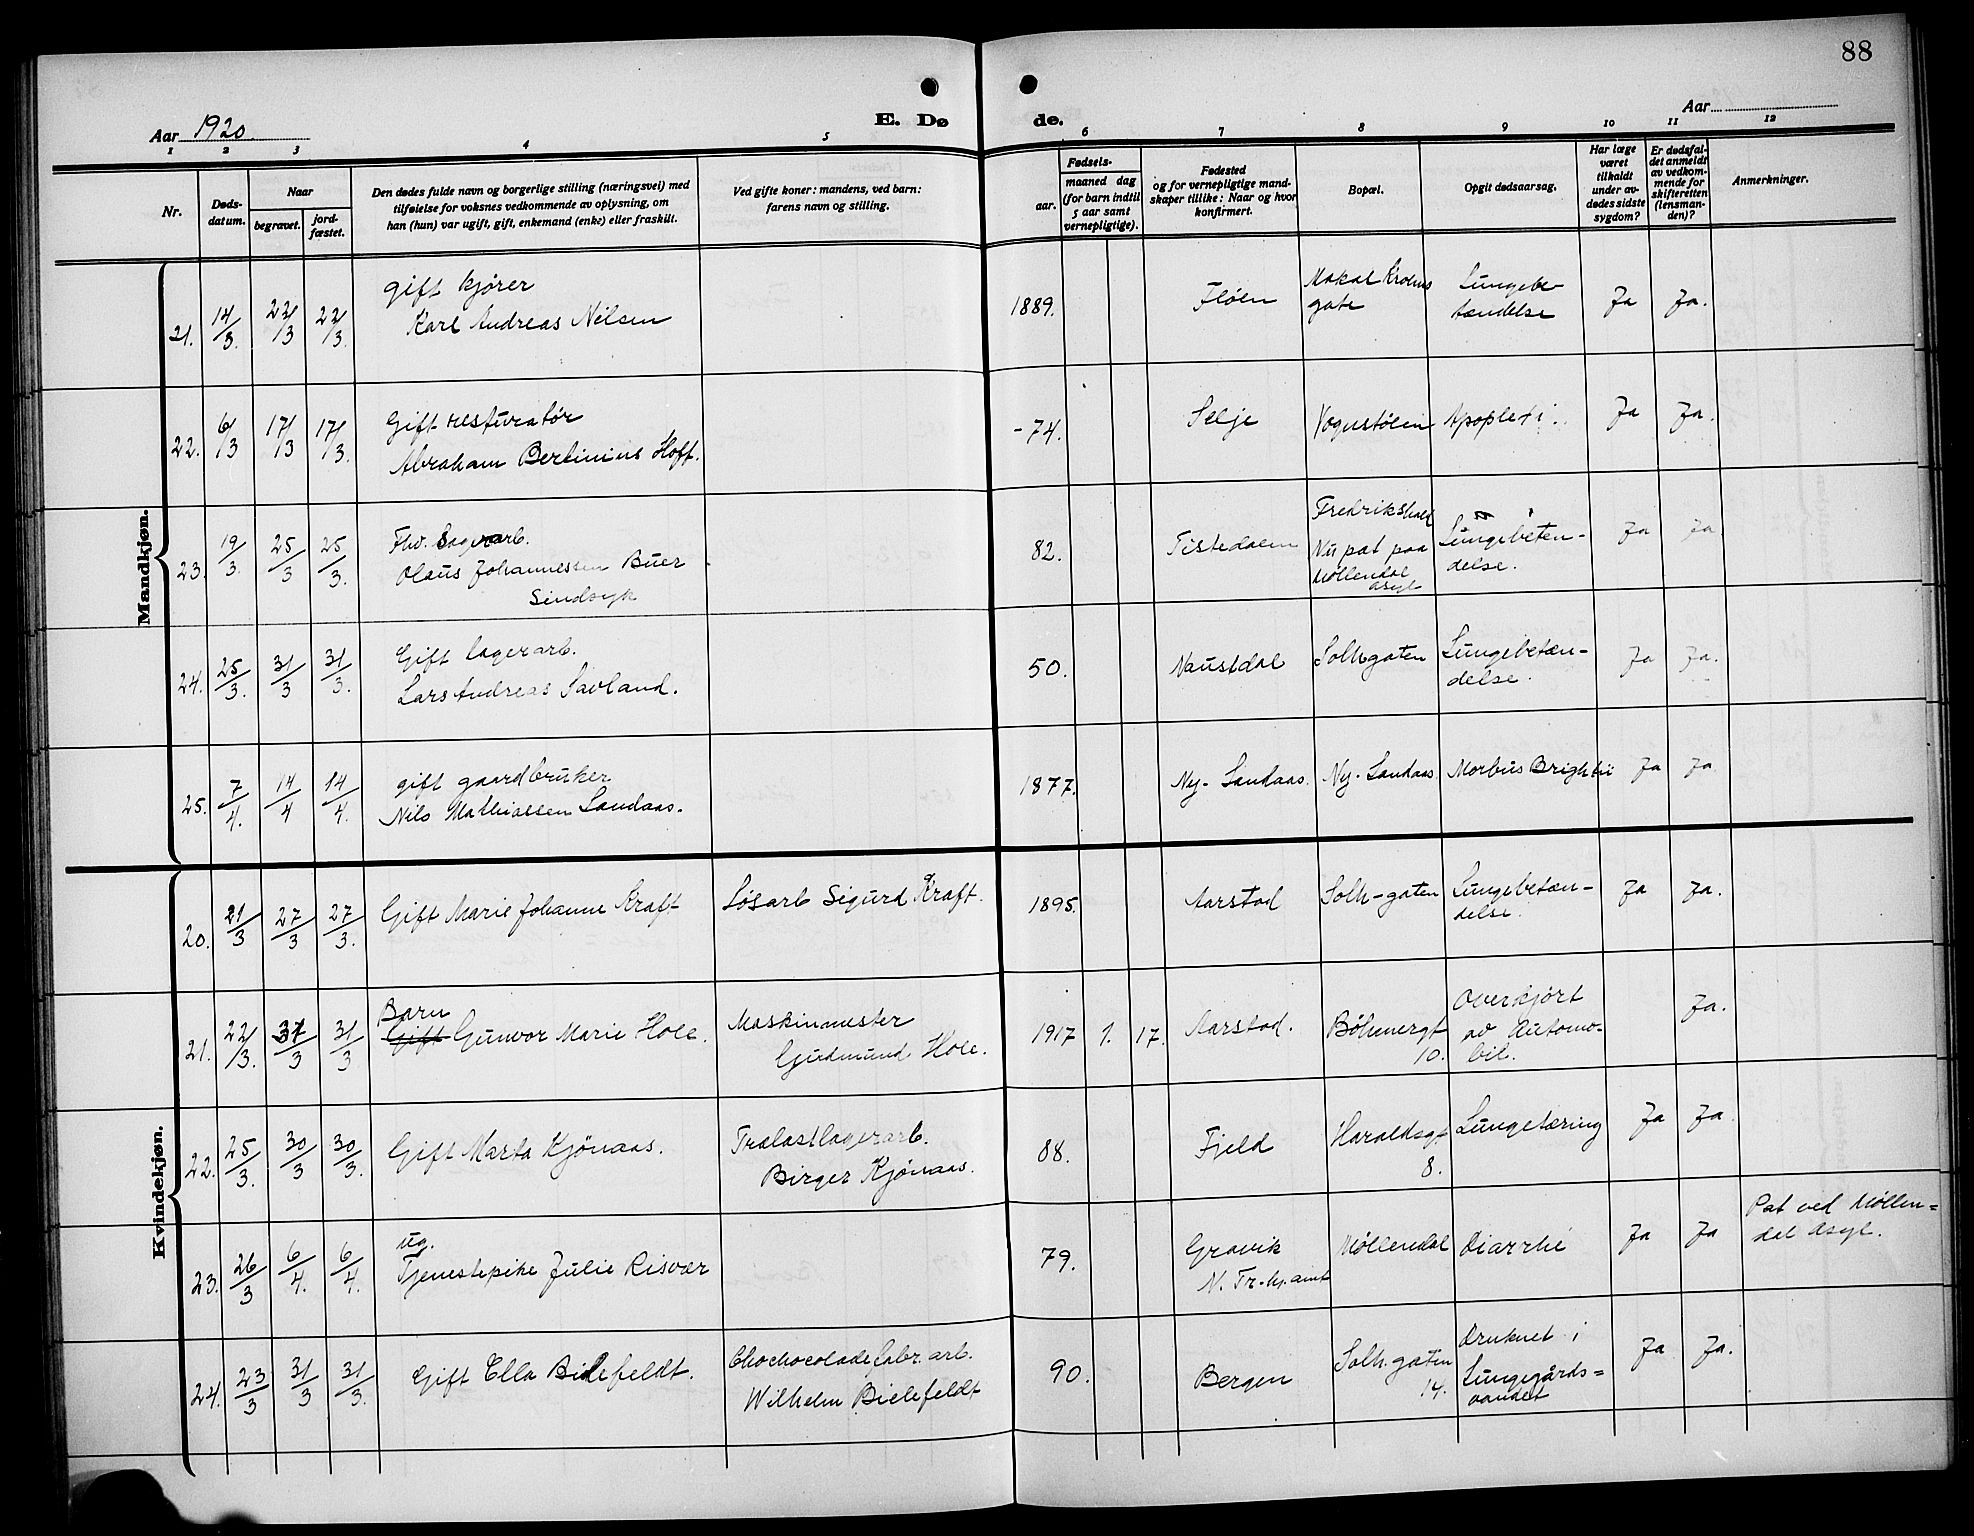 88
Aar 1920 E. Dø de. Aar
1 2 3 4 5 6 7 8 9 10 11 12
Nr.
Døds-
datum.
Naar
begravet.
jord-
fæstet.
Den dødes fulde navn og borgerlige stilling (næringsvei) med
tilføielse for voksnes vedkommende av oplysning, om
han (hun) var ugift, gift, enkemand (enke) eller fraskilt.
Ved gifte koner: mandens, ved barn:
farens navn og stilling.
Fødsels-
aar.
maaned dag
(for barn indtil
5 aar samt
vernepligtige).
Fødested
og for vernepligtige mand-
skaper tillike: Naar og hvor
konfirmert.
Bopæl.
Opgit dødsaarsag.
Har læge
været
tilkaldt
under av-
dødes sidste
sygdom?
Er dødsfal-
det anmeldt
av vedkom-
mende for
skifteretten
(lensman-
den)?
Anmerkninger.
Mandkjøn.
21. 14/3. 22/3 22/3.
gift kjører
Karl Andreas Nilsen
1889.
Fløen
gate
Lungebe-
tændelse
Ja Ja.
22. 6/3 17/3 17/3.
Gift resturatør
Abraham Bertinius Hoff.
-74.
Selje
Apoplexi.
Ja Ja.
23. 19/3. 25/3 25/3.
Fhv. lagerarb.
Olaus Johannessen Buer
Sindsyk
82.
Tistedalen
Fredrikshald
Nu pat paa
Møllendal
asyl
Lungebeten-
delse.
Ja Ja
24. 25/3. 31/3 31/3.
Gift lagerarb.
Lars Andreas Savland.
50.
Naustdal
Solh.gaten
Lungebetæn-
delse.
Ja Ja.
25. 7/4. 14/4 14/4.
gift gaardbruker
Nils Mathiassen Landaas.
1877.
Ny-Landaas.
Ny-Landaas.
Morbus Brightii
Ja Ja
Kvindekjøn.
20. 21/3 27/3 27/3.
Gift Marie Johanne Kraft
Løsarb Sigurd Kraft.
1895.
Aarstad
Solh-gaten
Lungebetæn-
delse.
Ja Ja.
21. 22/3. 31/3 31/3
Barn
Gift Gunvor Marie Hole.
Maskinmester
Gudmund Hole.
1917 1. 17.
Aarstad.
10.
Overkjørt
av Automo-
bil.
Ja.
22. 25/3. 30/3 30/3.
Gift Marta Kjønaas.
Trælastlagerarb.
Birger Kjønaas.
88.
Fjeld
Haraldsgt
8.
Lungetæring
Ja Ja.
23. 26/3 6/4. 6/4.
ug.
Tjenestepike Julie Risvær
79.
Gravik
N. Tr.hj.amt
Møllendal
Diarrhe
Ja Ja
Pat ved Møllen=
dal Asyl.
24. 23/3 31/3 31/3.
Gift Ella Bielefeldt.
Chochocoladefabr.arb.
Wilhelm Bielefeldt
90.
Bergen
Solh.gaten
14.
Druknet i
Lungegårds=
vandet
Ja Ja.